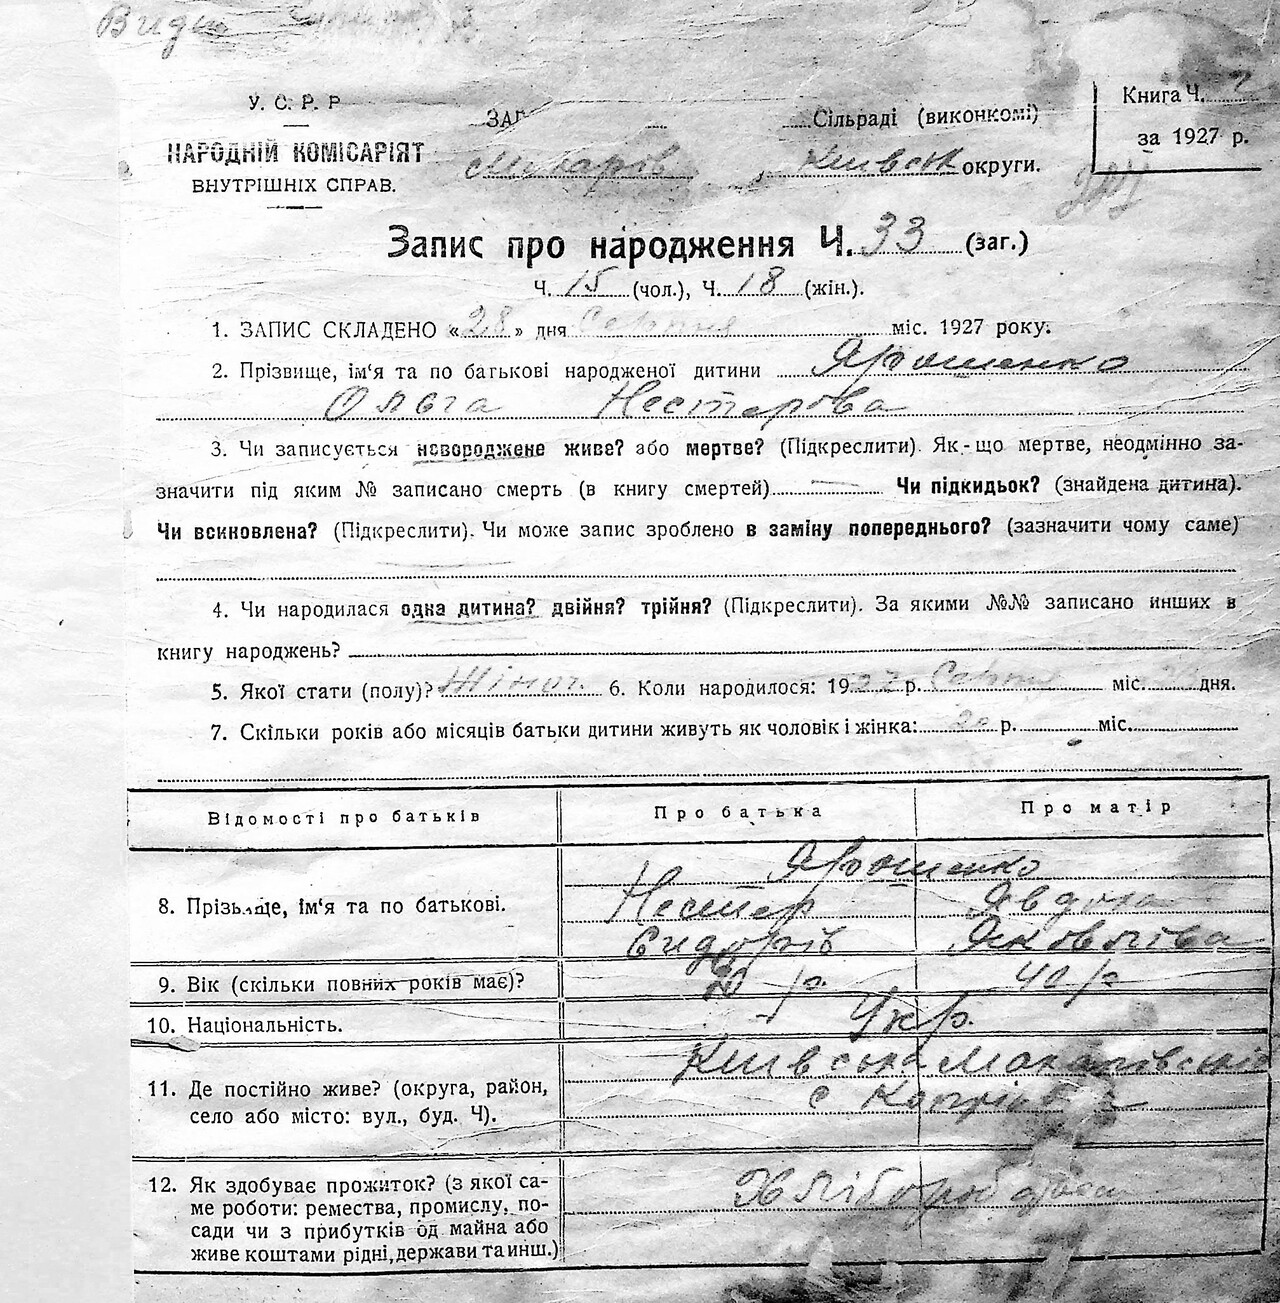 Видан
У. С. Р. Р
НАРОДНІЙ КОМІСАРІЯТ
ВНУТРІШНІХ СПРАВ.
Сільраді (виконкомі)
Макарів Київськ округи.
Книга Ч.
за 1927 р.
Запис про народження Ч. 33 (заг.)
Ч. 15 (чол.), Ч. 18 (жін.).
1. ЗАПИС СКЛАДЕНО «28» дня Серпня міс. 1927 року.
2. Прізвище, ім'я та по батькові народженої дитини Ярошенко
Ольга Нестерова
3. Чи записується новороджене живе? або мертве? (Підкреслити). Як-що мертве, неодмінно за-
значити під яким № записано смерть (в книгу смертей) Чи підкидьок? (знайдена дитина).
Чи всиновлена? (Підкреслити). Чи може запис зроблено в заміну попереднього? (зазначити чому саме)
4. Чи народилася одна дитина? двійня? трійня? (Підкреслити). За якими №№ записано инших в
книгу народжень?
5. Якої стати (полу)? Жіноч. 6. Коли народилося: 1927 р. Серпня міс. дня.
7. Скільки років або місяців батьки дитини живуть як чоловік і жінка: 20 р. міс.
Відомості про батьків Про батька Про матір
8. Прізвище, ім'я та по батькові.
Ярошенко
Нестер Явдоха
Сидорів Яковліва
9. Вік (скільки повних років має)? р. 40 р
10. Національність. Укр.
11. Де постійно живе? (округа, район,
село або місто: вул., буд. Ч).
Київська Макарівський
с
12. Як здобуває прожиток? (з якої са-
ме роботи: ремества, промислу, по-
сади чи з прибутків од майна або
живе коштами рідні, держави та инш.)
Хліборобство